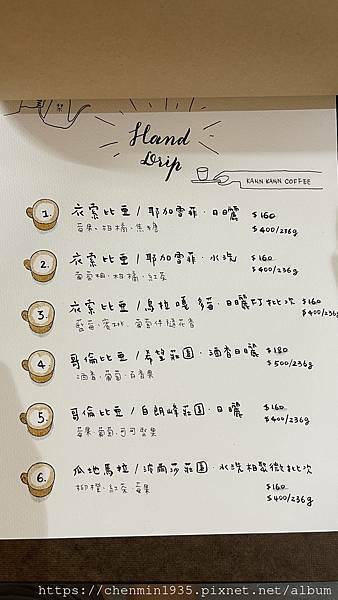 Hand
Drip
KANN KANN COFFEE
1. 衣索比亞/耶加雪菲·日曬 $160
莓果、柑橘、焦糖 $400/236g
2. 衣索比亞/耶加雪菲·水洗 $160
葡萄柚、柑橘、紅茶 $400/236g
3. 衣索比亞/烏拉嘎 多莓·日曬 批次 $160
藍莓、蜜桃、葡萄 $400/236g
4. 哥倫比亞/希望莊園·酒香日曬 $180
酒香、葡萄、百香果 $500/236g
5. 哥倫比亞/白朗峰莊園·日曬 $160
莓果、葡萄、可可堅果 $400/236g
6. 瓜地馬拉/波爾莎莊園·水洗 批次 $160
柳橙、紅茶、莓果 $400/236g
https://chenmin1935.pixnet.net/album